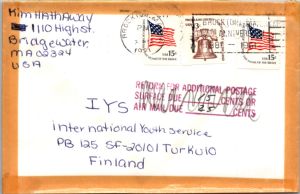 Kim Hathaway
1110 High St.
Bridgewater,
MA 02324
USA
BROCKTON, MA
PM
15c
13c
15c
RETURN FOR ADDITIONAL POSTAGE
SURFACE DUE 15 CENTS OR
AIR MAIL DUE CENTS
IYS
International Youth Service
PB 125 SF-20101 Turku 10
Finland